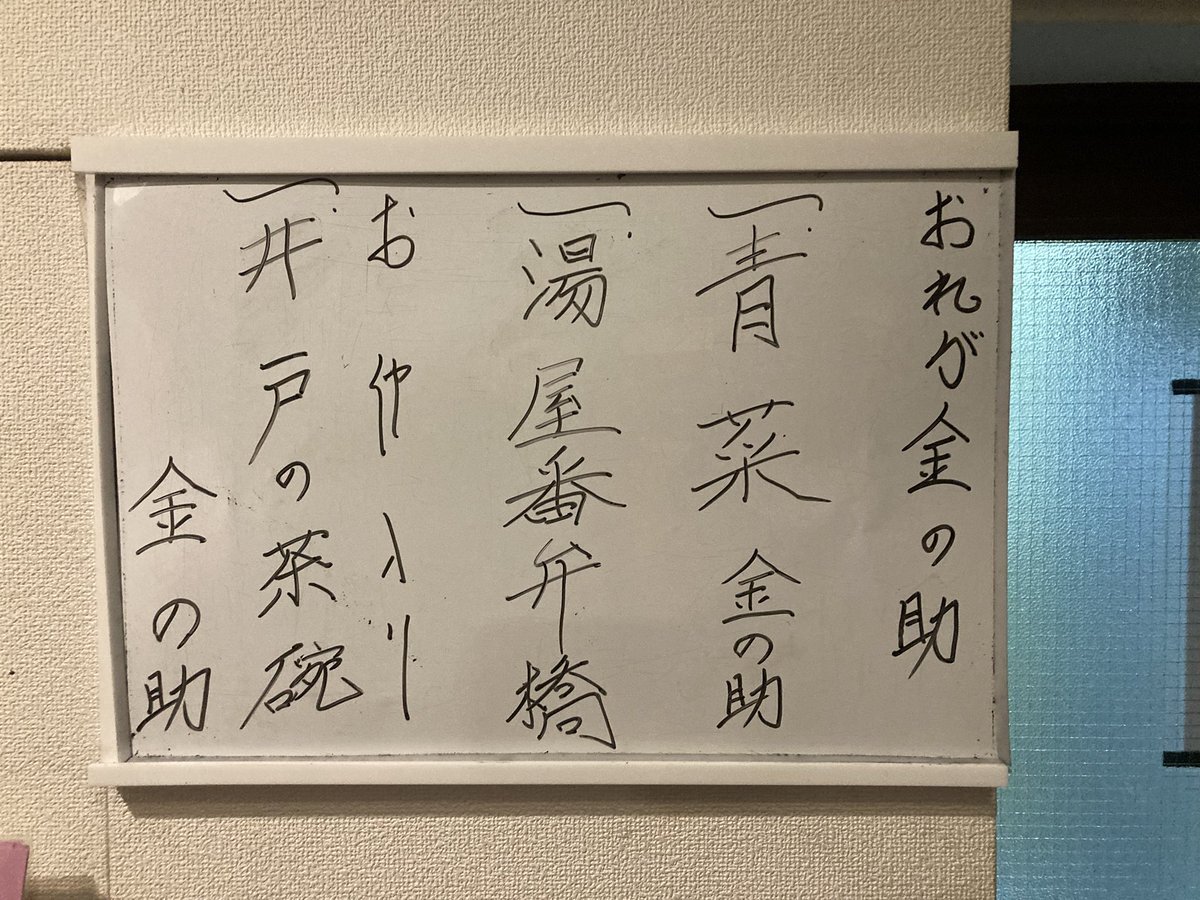 おれが金の助
一、青菜 金の助
一、湯屋番 弁橋
お仲入り
一、井戸の茶碗
金の助